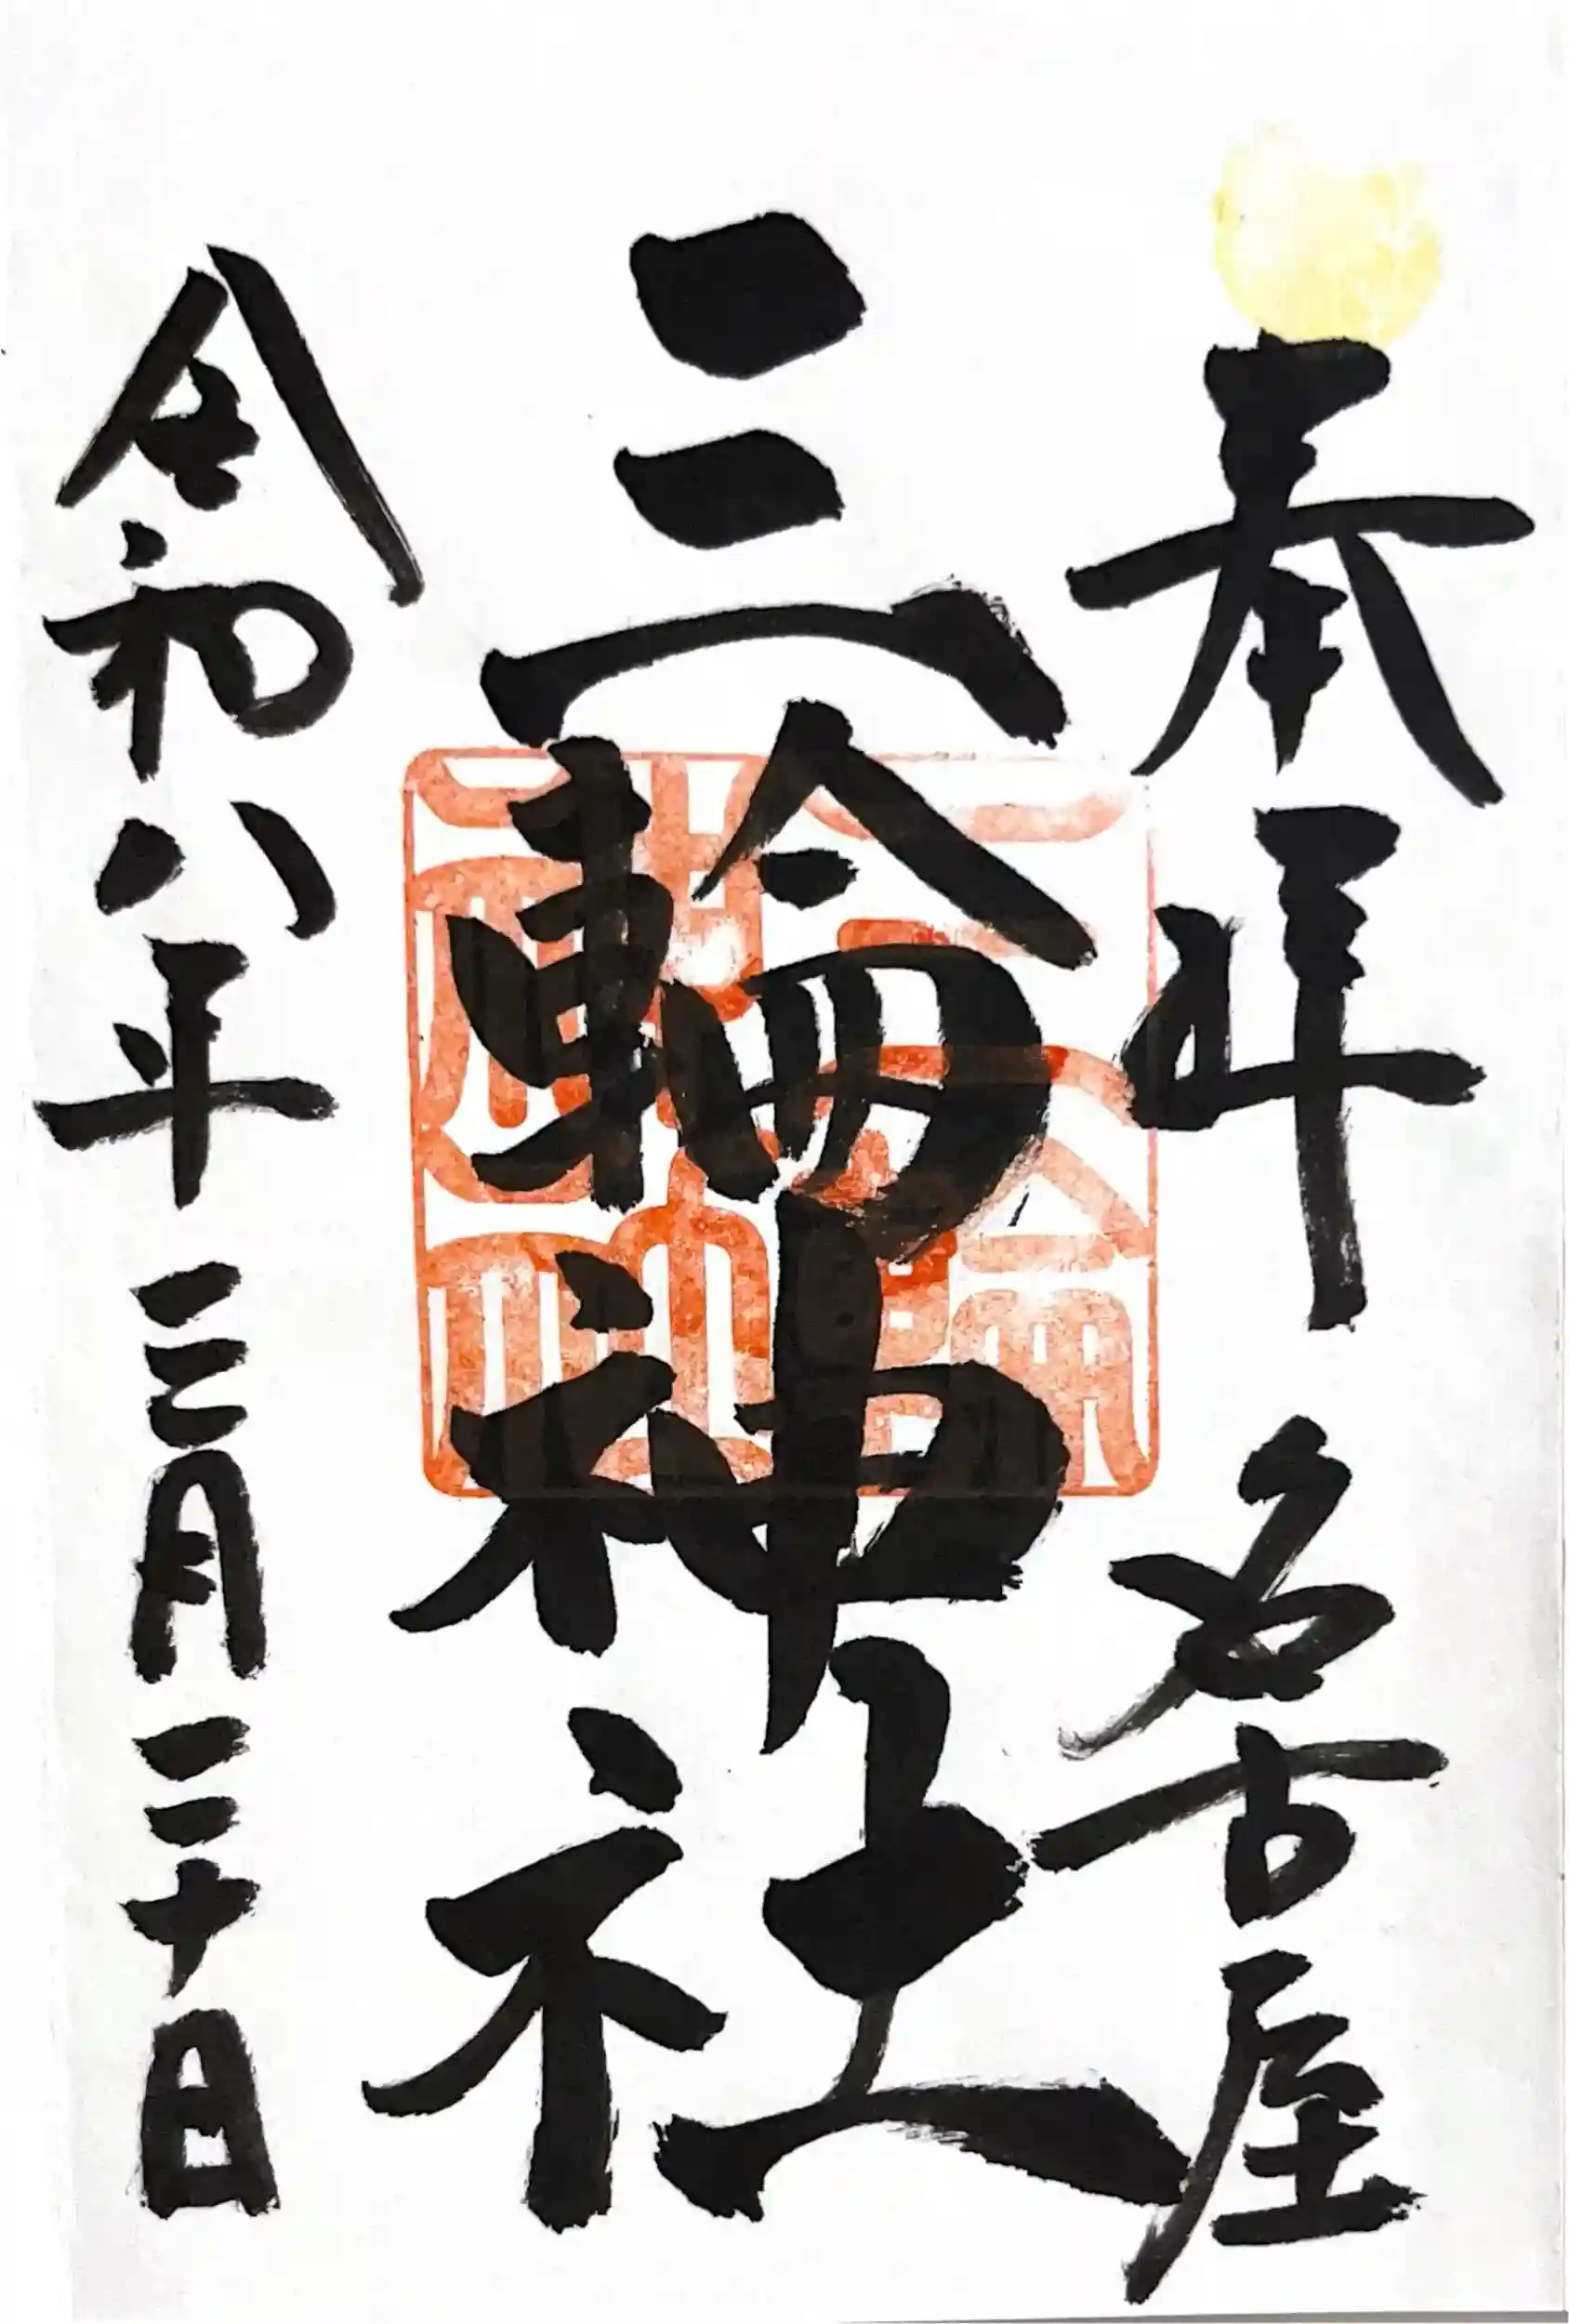 奉拝 名古屋
三輪神社
令和八年 三月二十日
三輪
神社